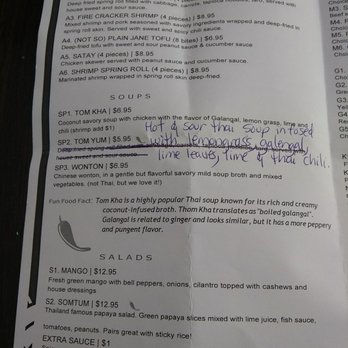 Deep fried spring roll filled with cabbage,
house sweet and sour sauce.
A3. FIRE CRACKER SHIRMP (4 pieces) | $8.95
Mixed shrimp and pork seasoned with savory ingredients wrapped and deep-fried in
spring roll skin. Served with sweet and spicy chili sauce.
A4. (NOT SO) PLAIN JANE TOFU (8 bites) | $6.95
Deep fried tofu with sweet and sour peanut sauce & cucumber sauce
A5. SATAY (4 pieces) | $8.95
Chicken skewer served with peanut sauce and cucumber sauce.
A6. SHRIMP SPRING ROLL (4 pieces) | $8.95
Marinated shrimp wrapped in spring roll skin deep-fried.
SOUPS
SP1. TOM KHA | $6.95
Coconut savory soup with chicken with the flavor of Galangal, lemon grass, lime and
chili (shrimp add $1)
Hot & sour thai soup infused
SP2. TOM YUM | $5.95
with lemongrass, galangal,
house sweet and sour sauce.
lime leaves, lime & thai chili.
SP3. WONTON | $6.95
Chinese wonton, in a gentle but flavorful savory mild soup broth and mixed
vegetables. (not Thai, but we love it!)
Fun Food Fact: Tom Kha is a highly popular Thai soup known for its rich and creamy
coconut-infused broth. Thom Kha translates as "boiled galangal".
Galangal is related to ginger and looks similar, but it has a more peppery
and pungent flavor.
SALADS
S1. MANGO | $12.95
Fresh green mango with bell peppers, onions, cilantro topped with cashews and
house dressing
S2. SOMTUM | $12.95
Thailand famous papaya salad. Green papaya slices mixed with lime juice, fish sauce,
tomatoes, peanuts. Pairs great with sticky rice!
EXTRA SAUCE | $1
Choic
M3. S
Beef s
M4.
Choic
M5.
Choi
M6.
Cho
G1.
G2
G3
Ch